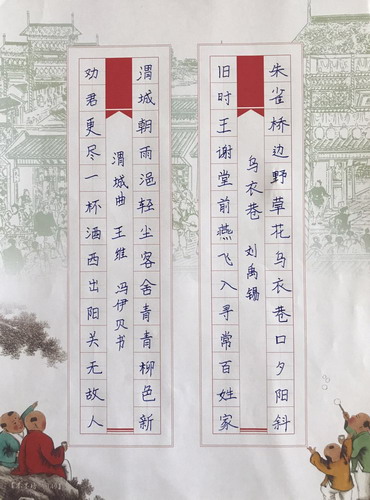 朱雀桥边野草花乌衣巷口夕阳斜
乌衣巷 刘禹锡
旧时王谢堂前燕飞入寻常百姓家
渭城朝雨浥轻尘客舍青青柳色新
渭城曲 王维 冯伊贝书
劝君更尽一杯酒西出阳关无故人